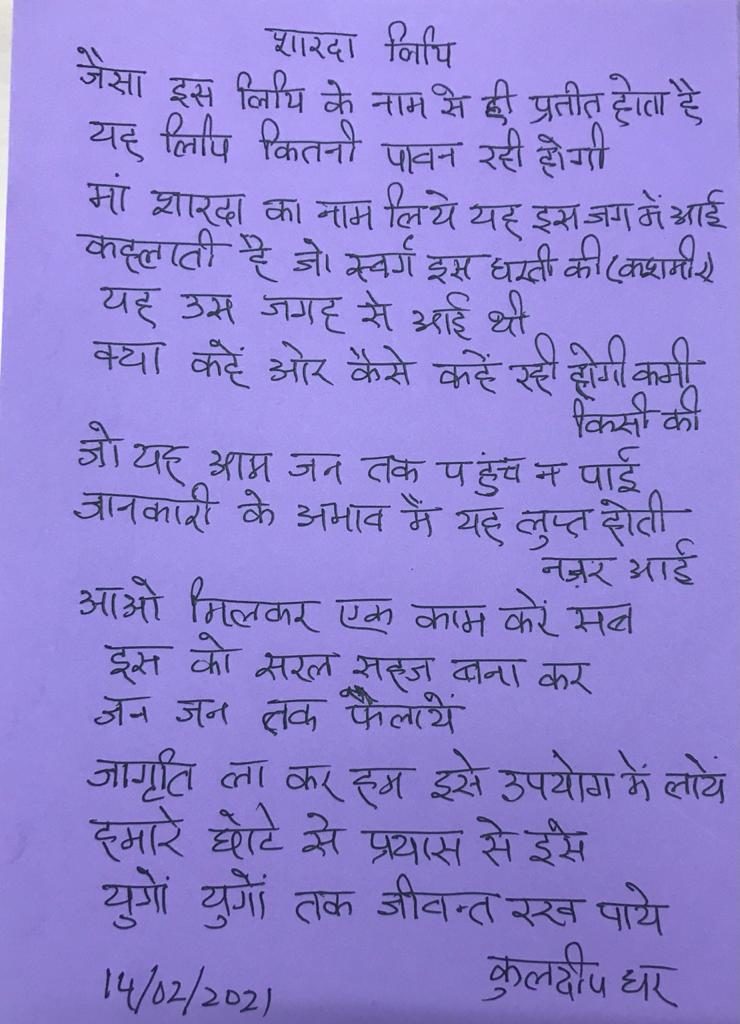 शारदा लिपि
जैसा इस लिपि के नाम से ही प्रतीत होता है
यह लिपि कितनी पावन रही होगी
मां शारदा का नाम लिये यह इस जग में आई
कहलाती है जो स्वर्ग इस धरती की (कशमीर)
यह उस जगह से आई थी
क्या कहें ओर कैसे कहें रही होगी कमी
किसी की
जो यह आम जन तक पहुंच न पाई
जानकारी के अभाव में यह लुप्त होती
नज़र आई
आओ मिलकर एक काम करें सब
इस को सरल सहज बना कर
जन जन तक फैलायें
जागृति ला कर हम इसे उपयोग में लायें
हमारे छोटे से प्रयास से इसे
युगों युगों तक जीवन्त रख पाये
14/02/2021 कुलदीप धर